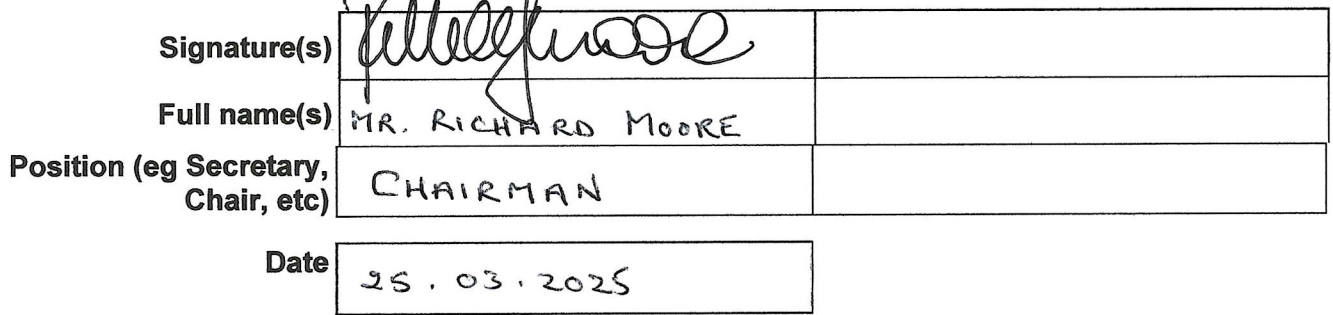 Signature(s)
Full name(s) MR. RICHARD MOORE
Position (eg Secretary,
Chair, etc) CHAIRMAN
Date 25.03.2025